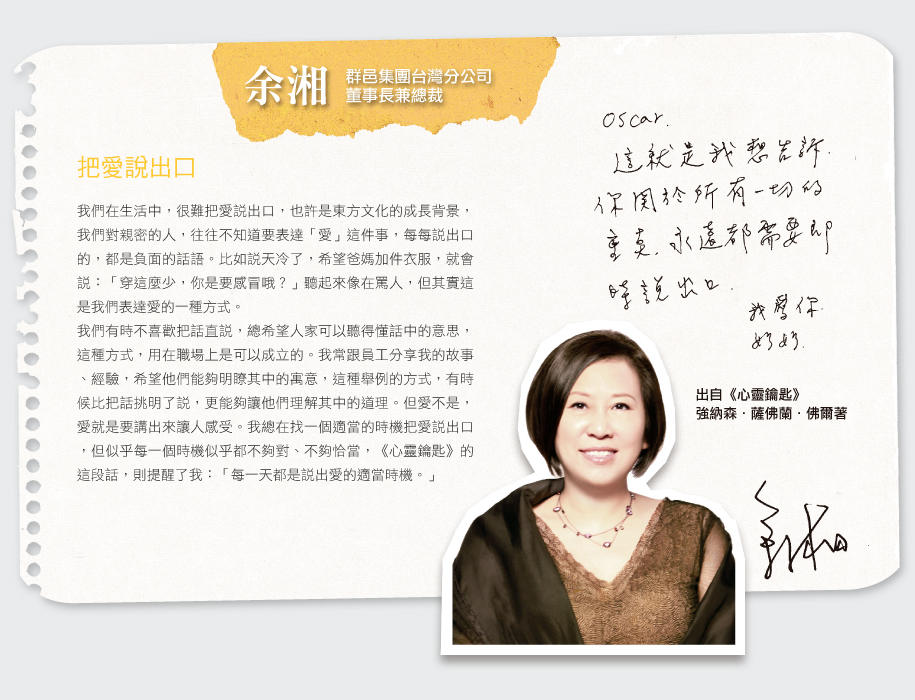 余湘
群邑集團台灣分公司
董事長兼總裁
把愛說出口
我們在生活中，很難把愛說出口，也許是東方文化的成長背景，
我們對親密的人，往往不知道要表達「愛」這件事，每每說出口
的，都是負面的話語。比如說天冷了，希望爸媽加件衣服，就會
說：「穿這麼少，你是要感冒哦？」聽起來像在罵人，但其實這
是我們表達愛的一種方式。
我們有時不喜歡把話直說，總希望人家可以聽得懂話中的意思，
這種方式，用在職場上是可以成立的。我常跟員工分享我的故事
、經驗，希望他們能夠明瞭其中的寓意，這種舉例的方式，有時
候比把話挑明了說，更能夠讓他們理解其中的道理。但愛不是，
愛就是要講出來讓人感受。我總在找一個適當的時機把愛說出口
，但似乎每一個時機似乎都不夠對、不夠恰當，《心靈鑰匙》的
這段話，則提醒了我：「每一天都是說出愛的適當時機。」
Oscar.
這就是我想告訴
你関於所有一切的
重点.永遠都需要即
時說出口.
我愛你.
奶奶.
出自《心靈鑰匙》
強納森．薩佛蘭．佛爾著
余湘